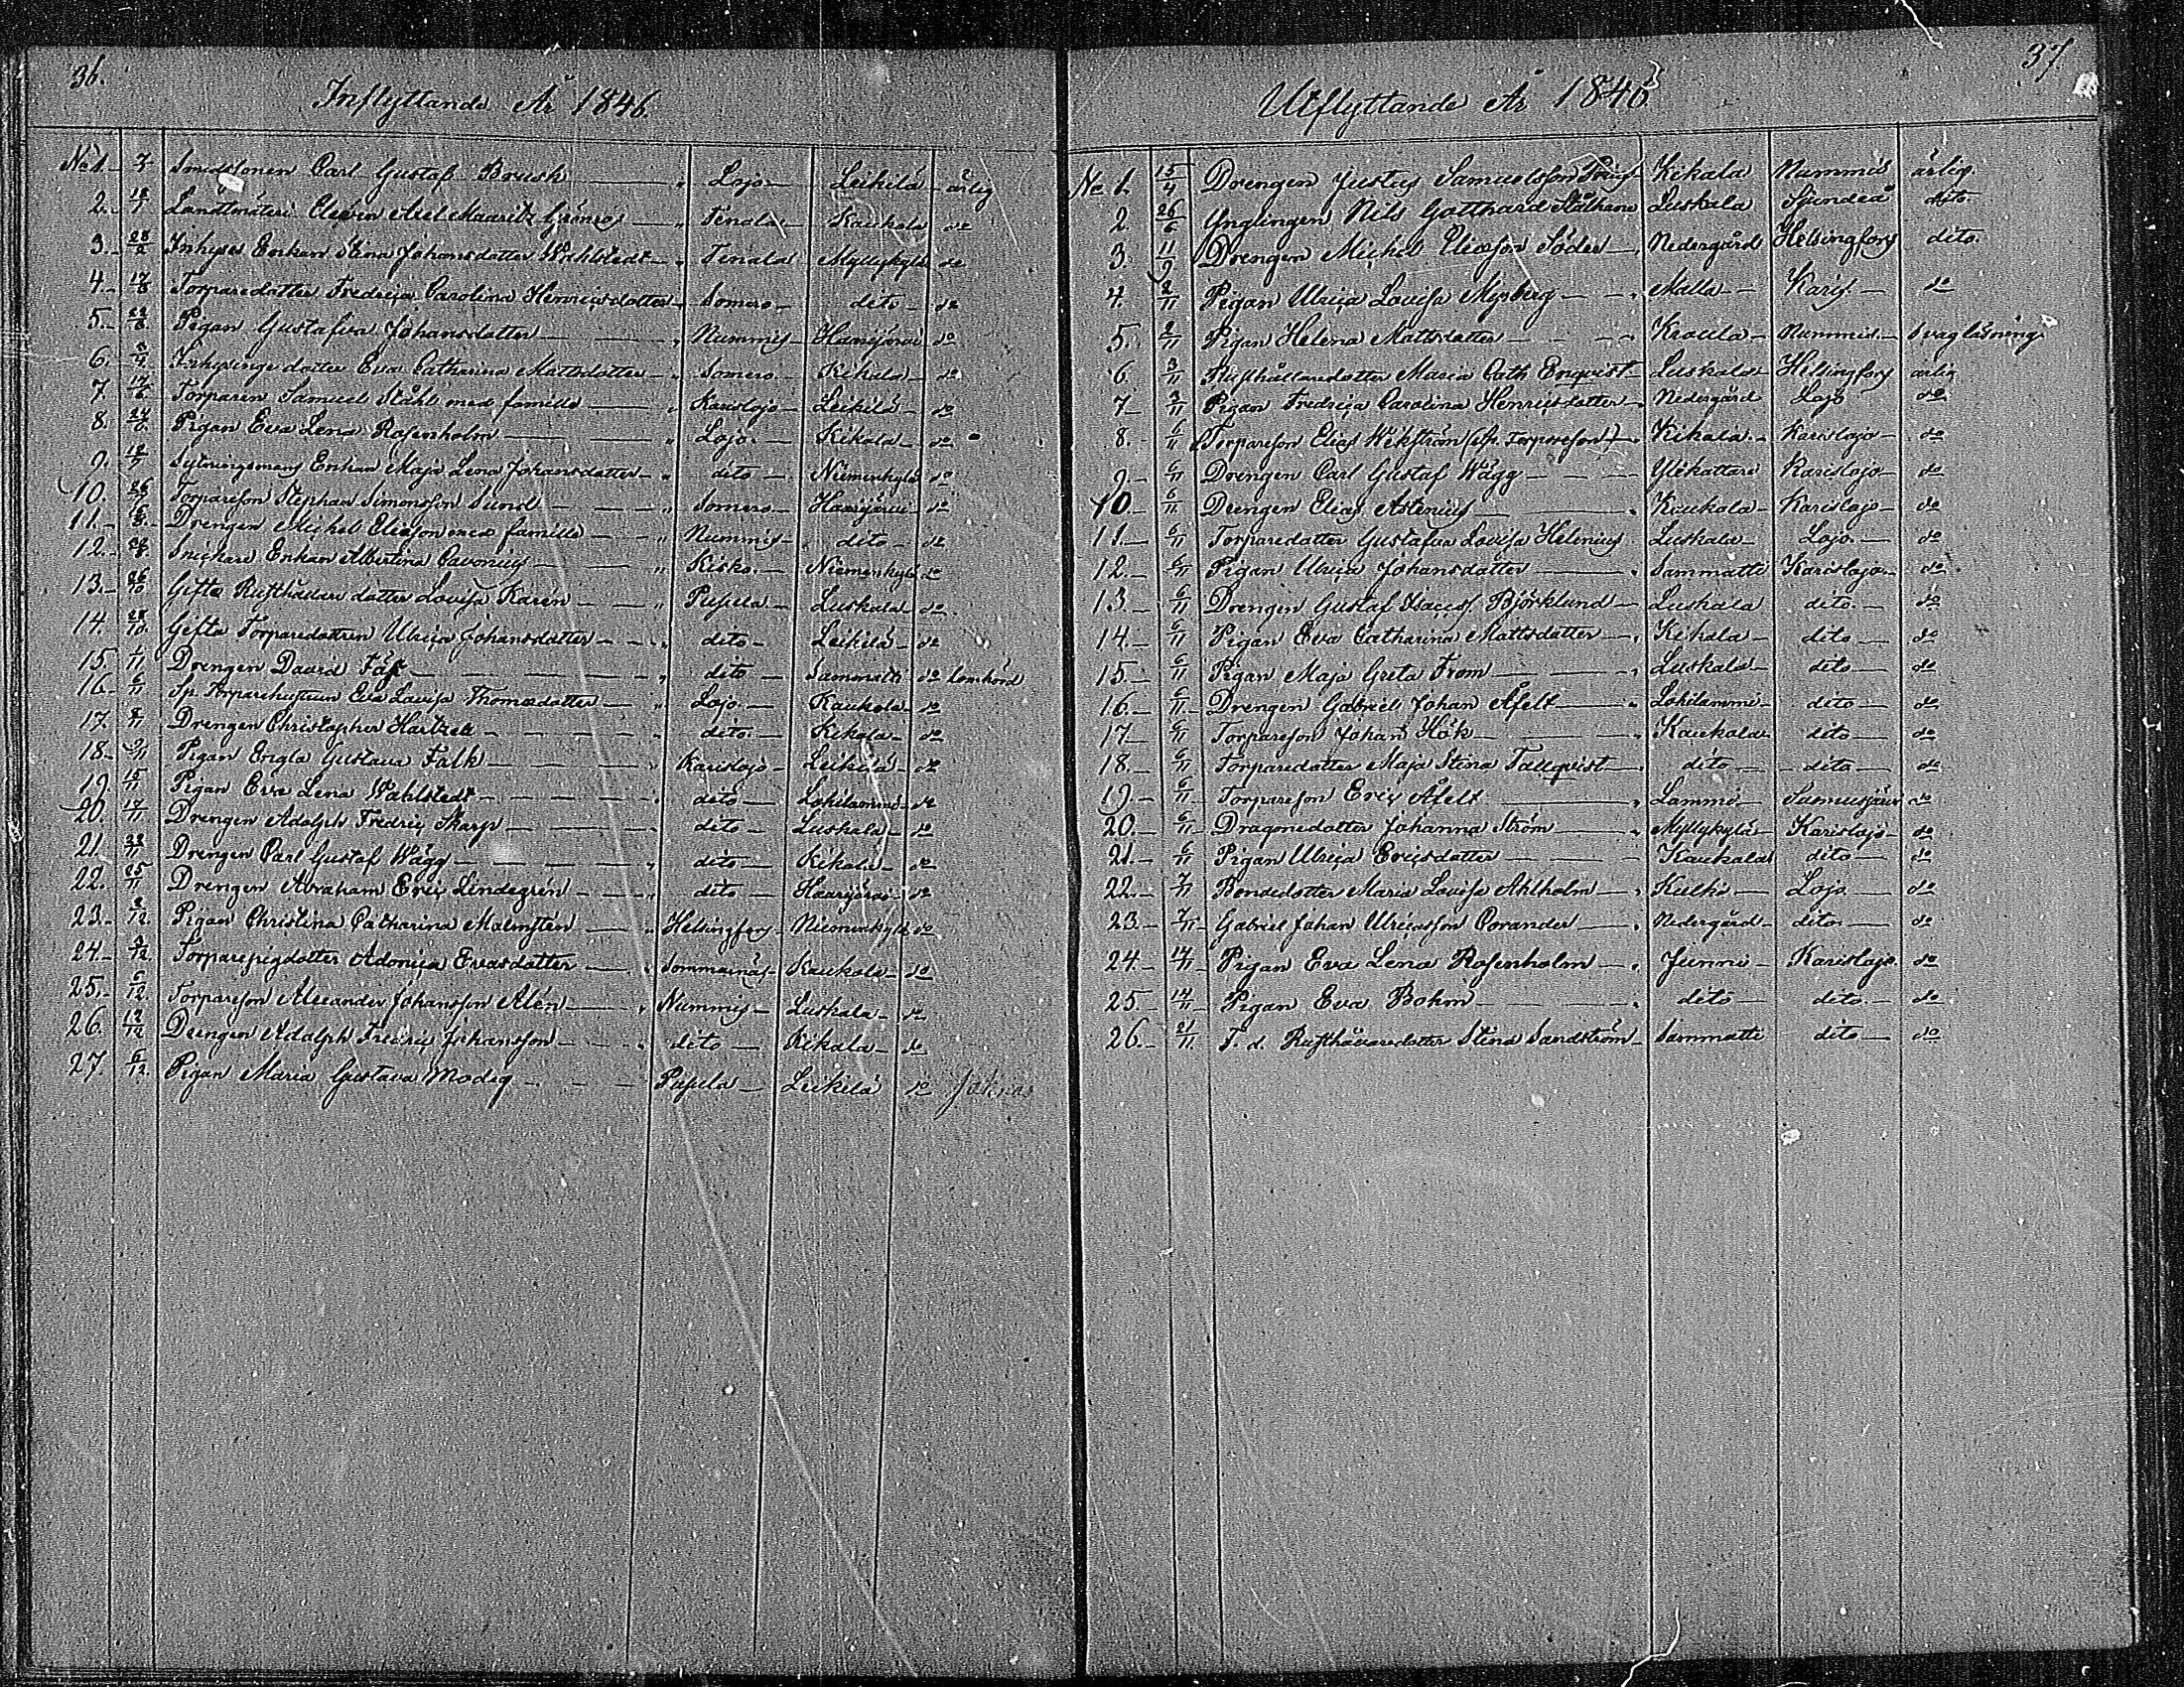 36.
Inflyttande År 1846.
No 1. Smedsonen Carl Gustaf Brusk Lojo Leikilä ärlig
2. Landtmäteri Eleven Axel Mauritz Grönros Tenala Kaukola do
3. 28/2 Inhyses Enkan Stina Johansdotter Wahlstedt Tenala Myllykylä do
4. 17/3 Torparedotter Fredrica Carolina Henricsdotter Somero dito do
5. Pigan Gustafva Johansdotter Nummis Haarijärvi do
6. Inhysinge dotter Eva Catharina Mattsdotter Somero Kikala do
7. Torparen Samuel Ståhl med famille Karislojo Leikilä do
8. Pigan Eva Lena Rosenholm Lojo Kikala do
9. Sytningsmans Enkan Maja Lena Johansdotter dito Niemenkylä do
10. Torpareson Stephan Simonsson Sund Somero Haarijärvi do
11. Drengen Michel Eliesson med famille Nummis dito do
12. Snickare Enkan Albertina Cavonius Kisko Niemenkylä do
13. 26/10 Gifta Rusthållare dotter Lovisa Karén Pusula Luskala do
14. 28/10 Gifta Torparedottren Ulrica Johansdotter dito Leikilä do
15. Drengen David Täst dito Sammatti do lomhörd
16. 6/11 Sp. Torparehustrun Eva Lovisa Thomasdotter Lojo Kaukola do
17. 8/11 Drengen Christopher Hartzell dito Kikala do
18. 9/11 Pigan Engla Gustava Falk Karislojo Leikilä do
19. 15/11 Pigan Eva Lena Wahlstedt dito Lohilammi do
20. 17/11 Drengen Adolph Fredric Skarp dito Luskala do
21. 22/11 Drengen Carl Gustaf Wägg dito Kikala do
22. 25/11 Drengen Abraham Eric Lindegrén dito Haarijärvi do
23. 2/12 Pigan Christina Catharina Malmstén Helsingfors Niemenkylä do
24. Torparepigdotter Adonica Evasdotter Sommarnäs Kaukola do
25. 6/12 Torpareson Alexander Johansson Alén Nummis Luskala do
26. 12/12 Drengen Adolph Fredric Johansson dito Kikala do
27. 6/12 Pigan Maria Gustava Modig Pusula Leikilä do
37
Utflyttande År 1846
No 1. 15/4 Drengen Justus Samuelsson Kikala Nummis ärlig
2. 26/6 Ynglingen Nils Gotthard Stålhane Luskala Sjundeå dito
3. 11/9 Drengen Michel Eliesson Söder Nedergård Helsingfors dito
4. 2/11 Pigan Ulrica Lovisa Nyberg Malla Karis do
5. 2/11 Pigan Helena Mattsdotter Kroula Nummis svag läsning
6. 3/11 Rusthållaredotter Maria Cath. Enqvist Luskala Helsingfors ärlig
7 3/11 Pigan Fredrica Carolina Henricsdotter Nedergård Lojo do
8. 6/11 Torpareson Elias Wikström (Sp. Torpareson) Kikala Karislojo do
9. 6/11 Drengen Carl Gustaf Wägg Ylikattare Karislojo do
10 6/11 Drengen Elias Astenius Kaukola Karislojo do
11. 6/11 Torparedotter Gustafva Lovisa Helenius Luskala Lojo do
12. 6/11 Pigan Ulrica Johansdotter Sammatti Karislojo do
13. 6/11 Drengen Gustaf Isacsson Björklund Luskala dito do
14. 6/11 Pigan Eva Catharina Mattsdotter Kikala dito do
15. 6/11 Pigan Maja Greta From Luskala dito do
16. 6/11 Drengen Gabriel Johan Åfelt Lohilammi dito do
17. 6/11 Torpareson Johan Hök Kaukola dito do
18. 6/11 Torparedotter Maja Stina Tallqvist dito dito do
19. 6/11 Torpareson Eric Åfelt Lammi Sammatti do
20. 6/11 Dragonedotter Johanna Ström Myllykylä Karislojo do
21. 6/11 Pigan Ulrica Ericsdotter Kaukola dito do
22. 7/11 Bondedotter Maria Lovisa Ahlholm Kulkis Lojo do
23. 7/11 Gabriel Johan Ulricasson Corander Nedergård dito do
24. 14/11 Pigan Eva Lena Rosenholm Junni Karislojo do
25. 14/11 Pigan Eva Bohm dito dito do
26. 21/11 F. d. Rusthållaredotter Stina Sandström Sammatti dito do